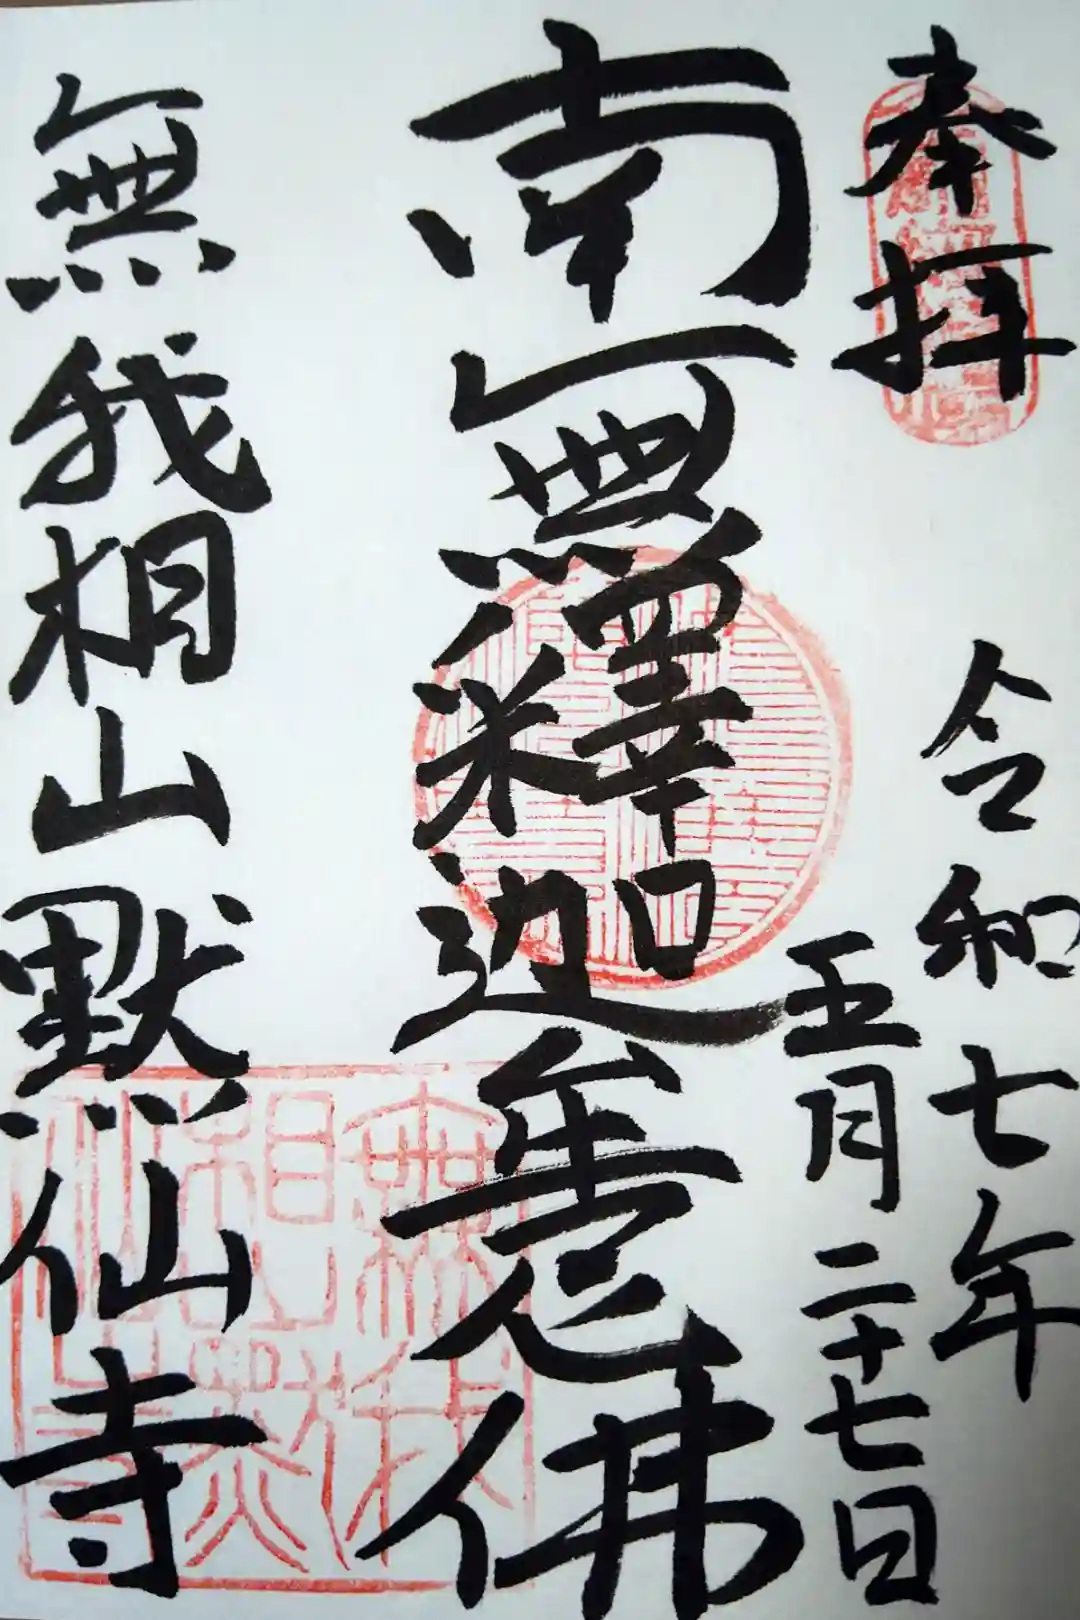 奉拝
令和七年
五月二十七日
南無釋迦牟尼佛
無我相山默仙寺